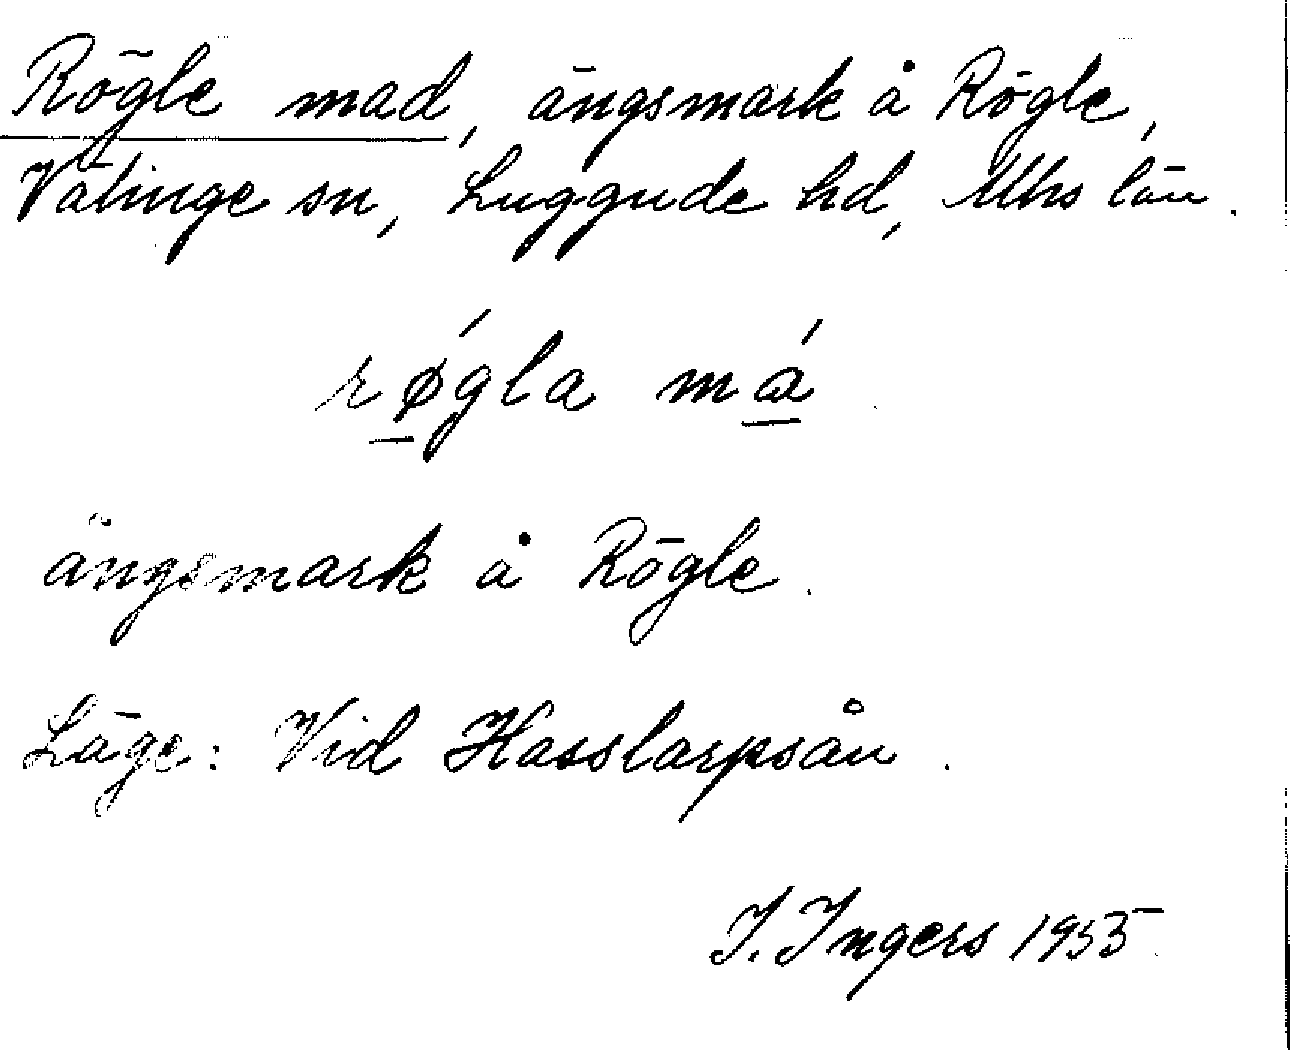 Rögle mad, ängsmark å Rögle,
Välinge sn, Luggude hd, Mhs län.
rǿ̱gla mɑ̱́
ängsmark å Rögle.
Läge: Vid Hasslarpsån.
I. Ingers 1955